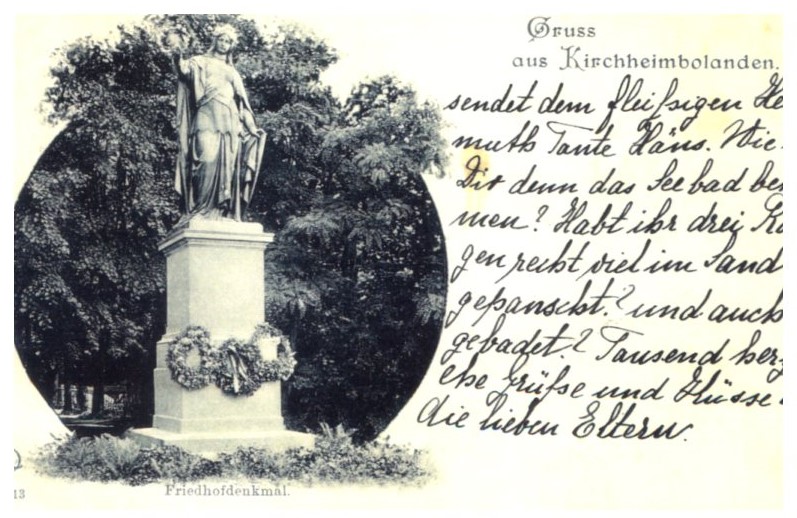 Gruss
aus Kirchheimbolanden.
sendet dem fleißigen He
muth Tante Häns. Wie
Dir denn das Seebad be
men? Habt ihr drei
gen recht viel im Sand
gepanscht? und auch
gebadet? Tausend herz
che Grüße und Küsse
die lieben Eltern.
13
Friedhofdenkmal.